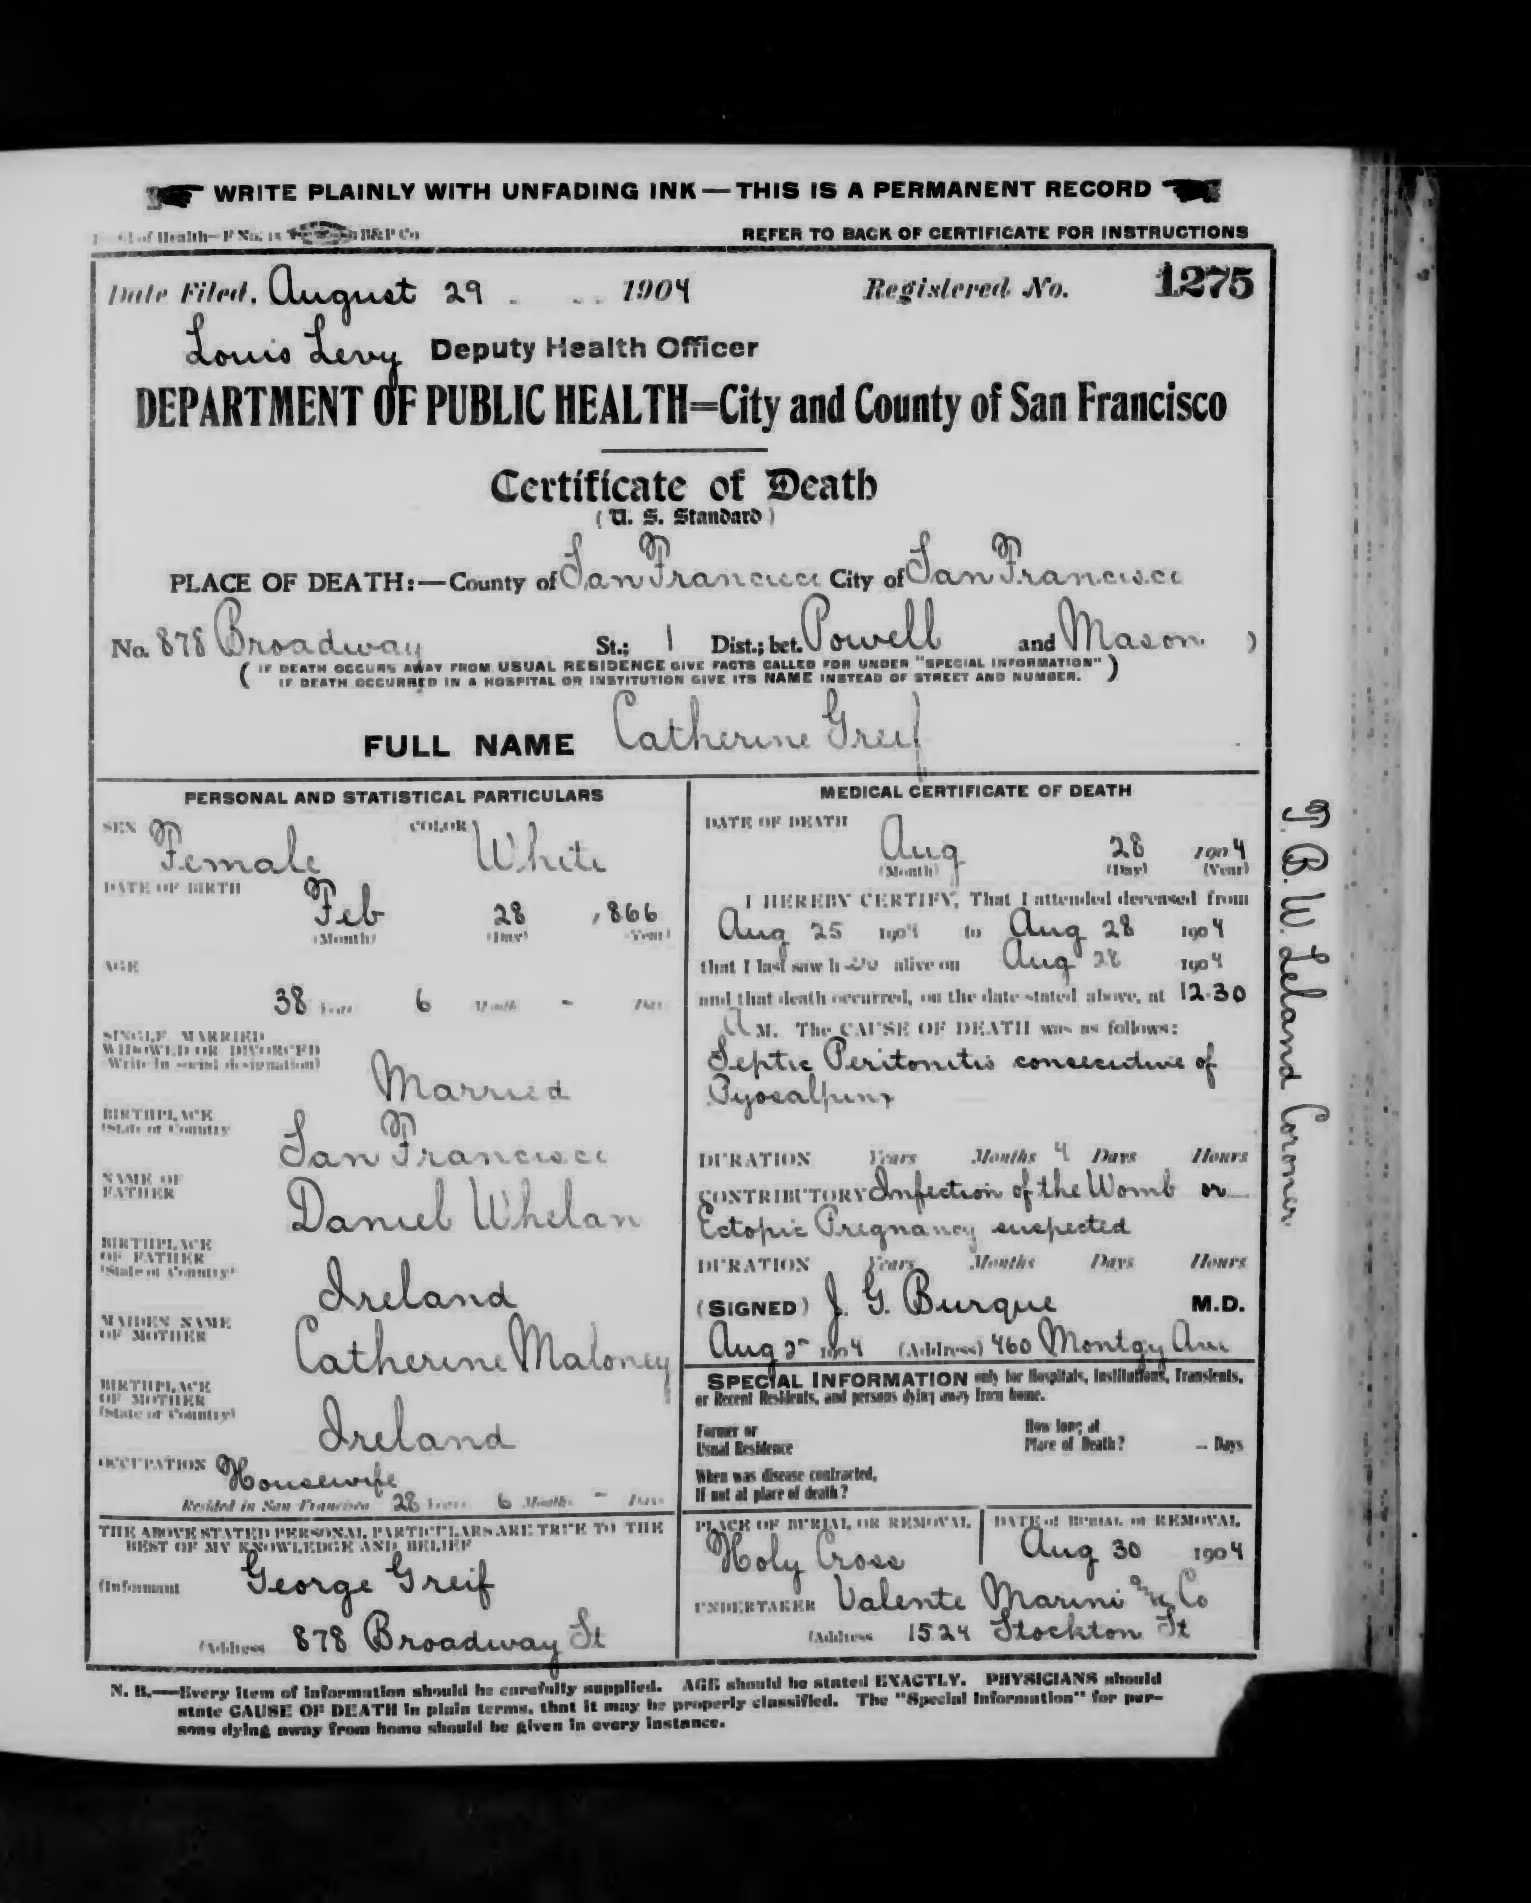 WRITE PLAINLY WITH UNFADING INK — THIS IS A PERMANENT RECORD
of Health—F No. 18 B&P Co
REFER TO BACK OF CERTIFICATE FOR INSTRUCTIONS
Date Filed, August 29 1904 Registered No. 1275
Louis Levy Deputy Health Officer
DEPARTMENT OF PUBLIC HEALTH=City and County of San Francisco
Certificate of Death
(U. S. Standard)
PLACE OF DEATH:—County of San Francisco City of San Francisco
No. 878 Broadway St.; 1 Dist.; bet. Powell and Mason )
( IF DEATH OCCURS AWAY FROM USUAL RESIDENCE GIVE FACTS CALLED FOR UNDER "SPECIAL INFORMATION" )
IF DEATH OCCURRED IN A HOSPITAL OR INSTITUTION GIVE ITS NAME INSTEAD OF STREET AND NUMBER.
FULL NAME Catherine Greif
PERSONAL AND STATISTICAL PARTICULARS
SEX Female COLOR White
DATE OF BIRTH
Feb 28 , 866
(Month) (Day) (Year)
AGE
38 Years 6 Months - Days
SINGLE, MARRIED
WIDOWED OR DIVORCED
(Write in social designation)
Married
BIRTHPLACE
(State or Country
San Francisco
NAME OF
FATHER
Daniel Whelan
BIRTHPLACE
OF FATHER
(State or Country)
Ireland
MAIDEN NAME
OF MOTHER
Catherine Maloney
BIRTHPLACE
OF MOTHER
(State or Country)
Ireland
OCCUPATION Housewife
Resided in San Francisco 28 Years 6 Months - Days
THE ABOVE STATED PERSONAL PARTICULARS ARE TRUE TO THE
BEST OF MY KNOWLEDGE AND BELIEF
(Informant George Greif
(Address 878 Broadway St
MEDICAL CERTIFICATE OF DEATH
DATE OF DEATH
Aug 28 1904
(Month) (Day) (Year)
I HEREBY CERTIFY, That I attended deceased from
Aug 25 1904 to Aug 28 1904
that I last saw h alive on Aug 28 1904
and that death occurred, on the date stated above, at 12.30
A M. The CAUSE OF DEATH was as follows:
Septic Peritonitis consecutive of
Pyosalpinx
DURATION Years Months 4 Days Hours
CONTRIBUTORY Infection of the Womb or
Ectopic Pregnancy suspected
DURATION Years Months Days Hours
(SIGNED) J. G. Burque M.D.
Aug 1904 (Address) 460 Montgy Ave
SPECIAL INFORMATION only for Hospitals, Institutions, Transients,
or Recent Residents, and persons dying away from home.
Former or
Usual Residence
How long at
Place of Death? - Days
When was disease contracted,
If not at place of death?
PLACE OF BURIAL OR REMOVAL
Holy Cross
DATE of BURIAL or REMOVAL
Aug 30 1904
UNDERTAKER Valente Marini & Co
(Address 1524 Stockton St
N. B.—Every item of information should be carefully supplied. AGE should be stated EXACTLY. PHYSICIANS should
state CAUSE OF DEATH in plain terms, that it may be properly classified. The "Special Information" for per-
sons dying away from home should be given in every instance.
T. B. W. Leland Coroner.